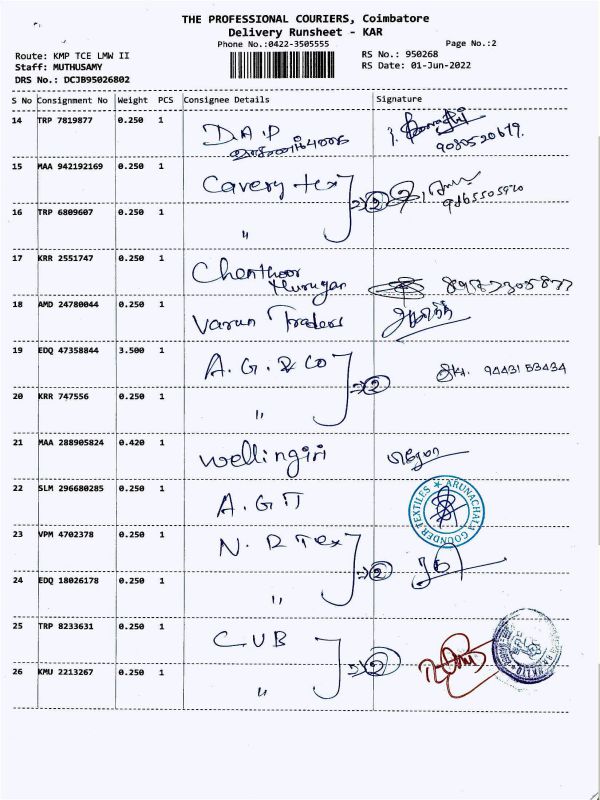 THE PROFESSIONAL COURIERS, Coimbatore
Delivery Runsheet - KAR
Phone No.:0422-3505555
Page No.:2
Route: KMP TCE LMW II
RS No.: 950268
Staff: MUTHUSAMY
RS Date: 01-Jun-2022
DRS No.: DCJB95026802
S No Consignment No Weight PCS Consignee Details Signature
14 TRP 7819877 0.250 1 D.A.P
15 MAA 942192169 0.250 1 Cavery tex 2
16 TRP 6809607 0.250 1 "
17 KRR 2551747 0.250 1 Chenthoor Murugan
18 AMD 24780044 0.250 1 Varun Traders
19 EDQ 47358844 3.500 1 A.G. & Co 2 94431 53434
20 KRR 747556 0.250 1 "
21 MAA 288905824 0.420 1 Wellingiri
22 SLM 296680285 0.250 1 A.G.T ARUNACHALA GOUNDER TEXTILES
23 VPM 4702378 0.250 1 N.R Tex 2
24 EDQ 18026178 0.250 1 "
25 TRP 8233631 0.250 1 C U B 2
26 KMU 2213267 0.250 1 "